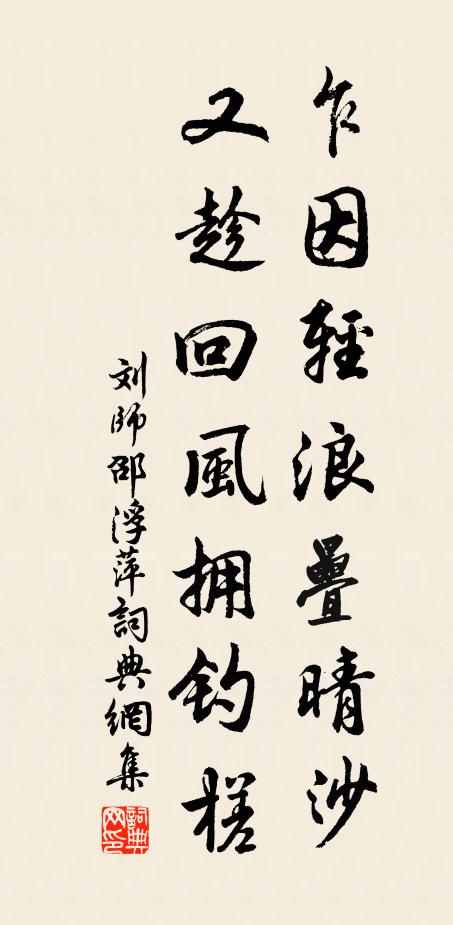 乍因輕浪疊晴沙
又趁回風擁釣槎
刘師邵浮萍詞典網集
詞典网印